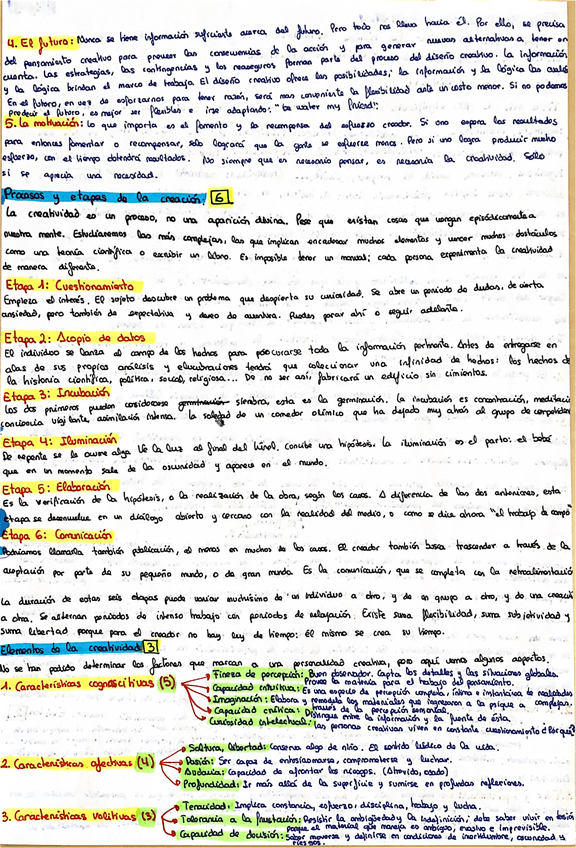 4. El futuro: Nunca se tiene información suficiente acerca del futuro. Pero todo nos lleva hacia él. Por ello, se precisa
del pensamiento creativo para prever las consecuencias de la acción y para generar nuevas alternativas a tener en
cuenta. Las estrategias, las contingencias y los reaseguros forman parte del proceso del diseño creativo. La información
y la lógica brindan el marco de trabajo. El diseño creativo ofrece las posibilidades; la información y la lógica las
En el futuro, en vez de esforzarnos para tener razón, será más conveniente la flexibilidad ante un costo menor. Si no podemos
predecir el futuro, es mejor ser flexibles e irse adaptando: "be water my friend!"
5. La motivación: lo que importa es el fomento y la recompensa del esfuerzo creador. Si uno espera los resultados
para entonces fomentar o recompensar, sólo logrará que la gente se esfuerce menos. Pero si uno logra producir mucho
esfuerzo, con el tiempo obtendrá resultados. No siempre que es necesario pensar, es necesaria la creatividad. Sólo
si se aprecia una necesidad.
Procesos y etapas de la creación 6
La creatividad es un proceso, no una aparición divina. Pese que existan cosas que vengan episódicamente a
nuestra mente. Estudiaremos las más complejas, las que implican encadenar muchos elementos y vencer muchos obstáculos
como una teoría científica o escribir un libro. Es imposible tener un manual; cada persona experimenta la creatividad
de manera diferente.
Etapa 1: Cuestionamiento
Empieza el interés. El sujeto descubre un problema que despierta su curiosidad. Se abre un periodo de dudas, de cierta
ansiedad, pero también de expectativa y deseo de aventura. Puedes parar ahí o seguir adelante.
Etapa 2: Acopio de datos
El individuo se lanza al campo de los hechos para procurarse toda la información pertinente. Antes de entregarse en
alas de sus propios análisis y elucubraciones tendrá que coleccionar una infinidad de hechos: los hechos de
la historia científica, política, social, religiosa... De no ser así, fabricará un edificio sin cimientos.
Etapa 3: Incubación
Las dos primeras pueden considerarse germinación siembra, esta es la germinación. La incubación es concentración, meditación
conciencia vigilante, asimilación intensa. La soledad de un corredor olímpico que ha dejado muy atrás al grupo de competidores
Etapa 4: Iluminación
De repente se le ocurre algo. Ve la luz al final del túnel, concibe una hipótesis. La iluminación es el parto: el bebé
que en un momento sale de la oscuridad y aparece en el mundo.
Etapa 5: Elaboración
Es la verificación de la hipótesis, o la realización de la obra, según los casos. A diferencia de las dos anteriores, esta
etapa se desenvuelve en un diálogo abierto y cercano con la realidad del medio, o como se dice ahora "el trabajo de campo"
Etapa 6: Comunicación
Podríamos llamarla también publicación, al menos en muchos de los casos. El creador también busca trascender a través de la
aceptación por parte de su pequeño mundo, o de gran mundo. Es la comunicación, que se completa con la retroalimentación
La duración de estas seis etapas puede variar muchísimo de un individuo a otro, y de un grupo a otro, y de una creación
a otra. Se alternan periodos de intenso trabajo con periodos de relajación. Existe suma flexibilidad, suma subjetividad y
suma libertad porque para el creador no hay ley de tiempo: él mismo se crea su tiempo.
Elementos de la creatividad 3
No se han podido determinar los factores que marcan a una personalidad creativa, pero aquí vemos algunos aspectos.
1. Características cognoscitivas (5)
Fineza de percepción: Buen observador. Capta los detalles y las situaciones globales.
Provee la materia para el trabajo del pensamiento.
Capacidad intuitiva: Es una especie de percepción completa, íntima e instantánea de realidades
Imaginación: Elabora y remodela los materiales que ingresaron a la psique a
través de la percepción sensorial.
Capacidad crítica: Distingue entre la información y la fuente de ésta.
Curiosidad intelectual: las personas creativas viven en constante cuestionamiento ¿Por qué?
2. Características afectivas (4)
Soltura, libertad: Conserva algo de niño. El sentido lúdico de la vida.
Pasión: Ser capaz de entusiasmarse, comprometerse y luchar.
Audacia: Capacidad de afrontar los riesgos. (Atrevido, osado)
Profundidad: Ir más allá de la superficie y sumirse en profundas reflexiones.
3. Características volitivas (3)
Tenacidad: Implica constancia, esfuerzo, disciplina, trabajo y lucha.
Tolerancia a la frustación: Resistir la ambigüedad y la indefinición; debe saber vivir en tensión
porque el material que maneja es ambiguo, evasivo e imprevisible.
Capacidad de decisión: Saber moverse y definirse en condiciones de incertidumbre, oscuridad y
riesgos.